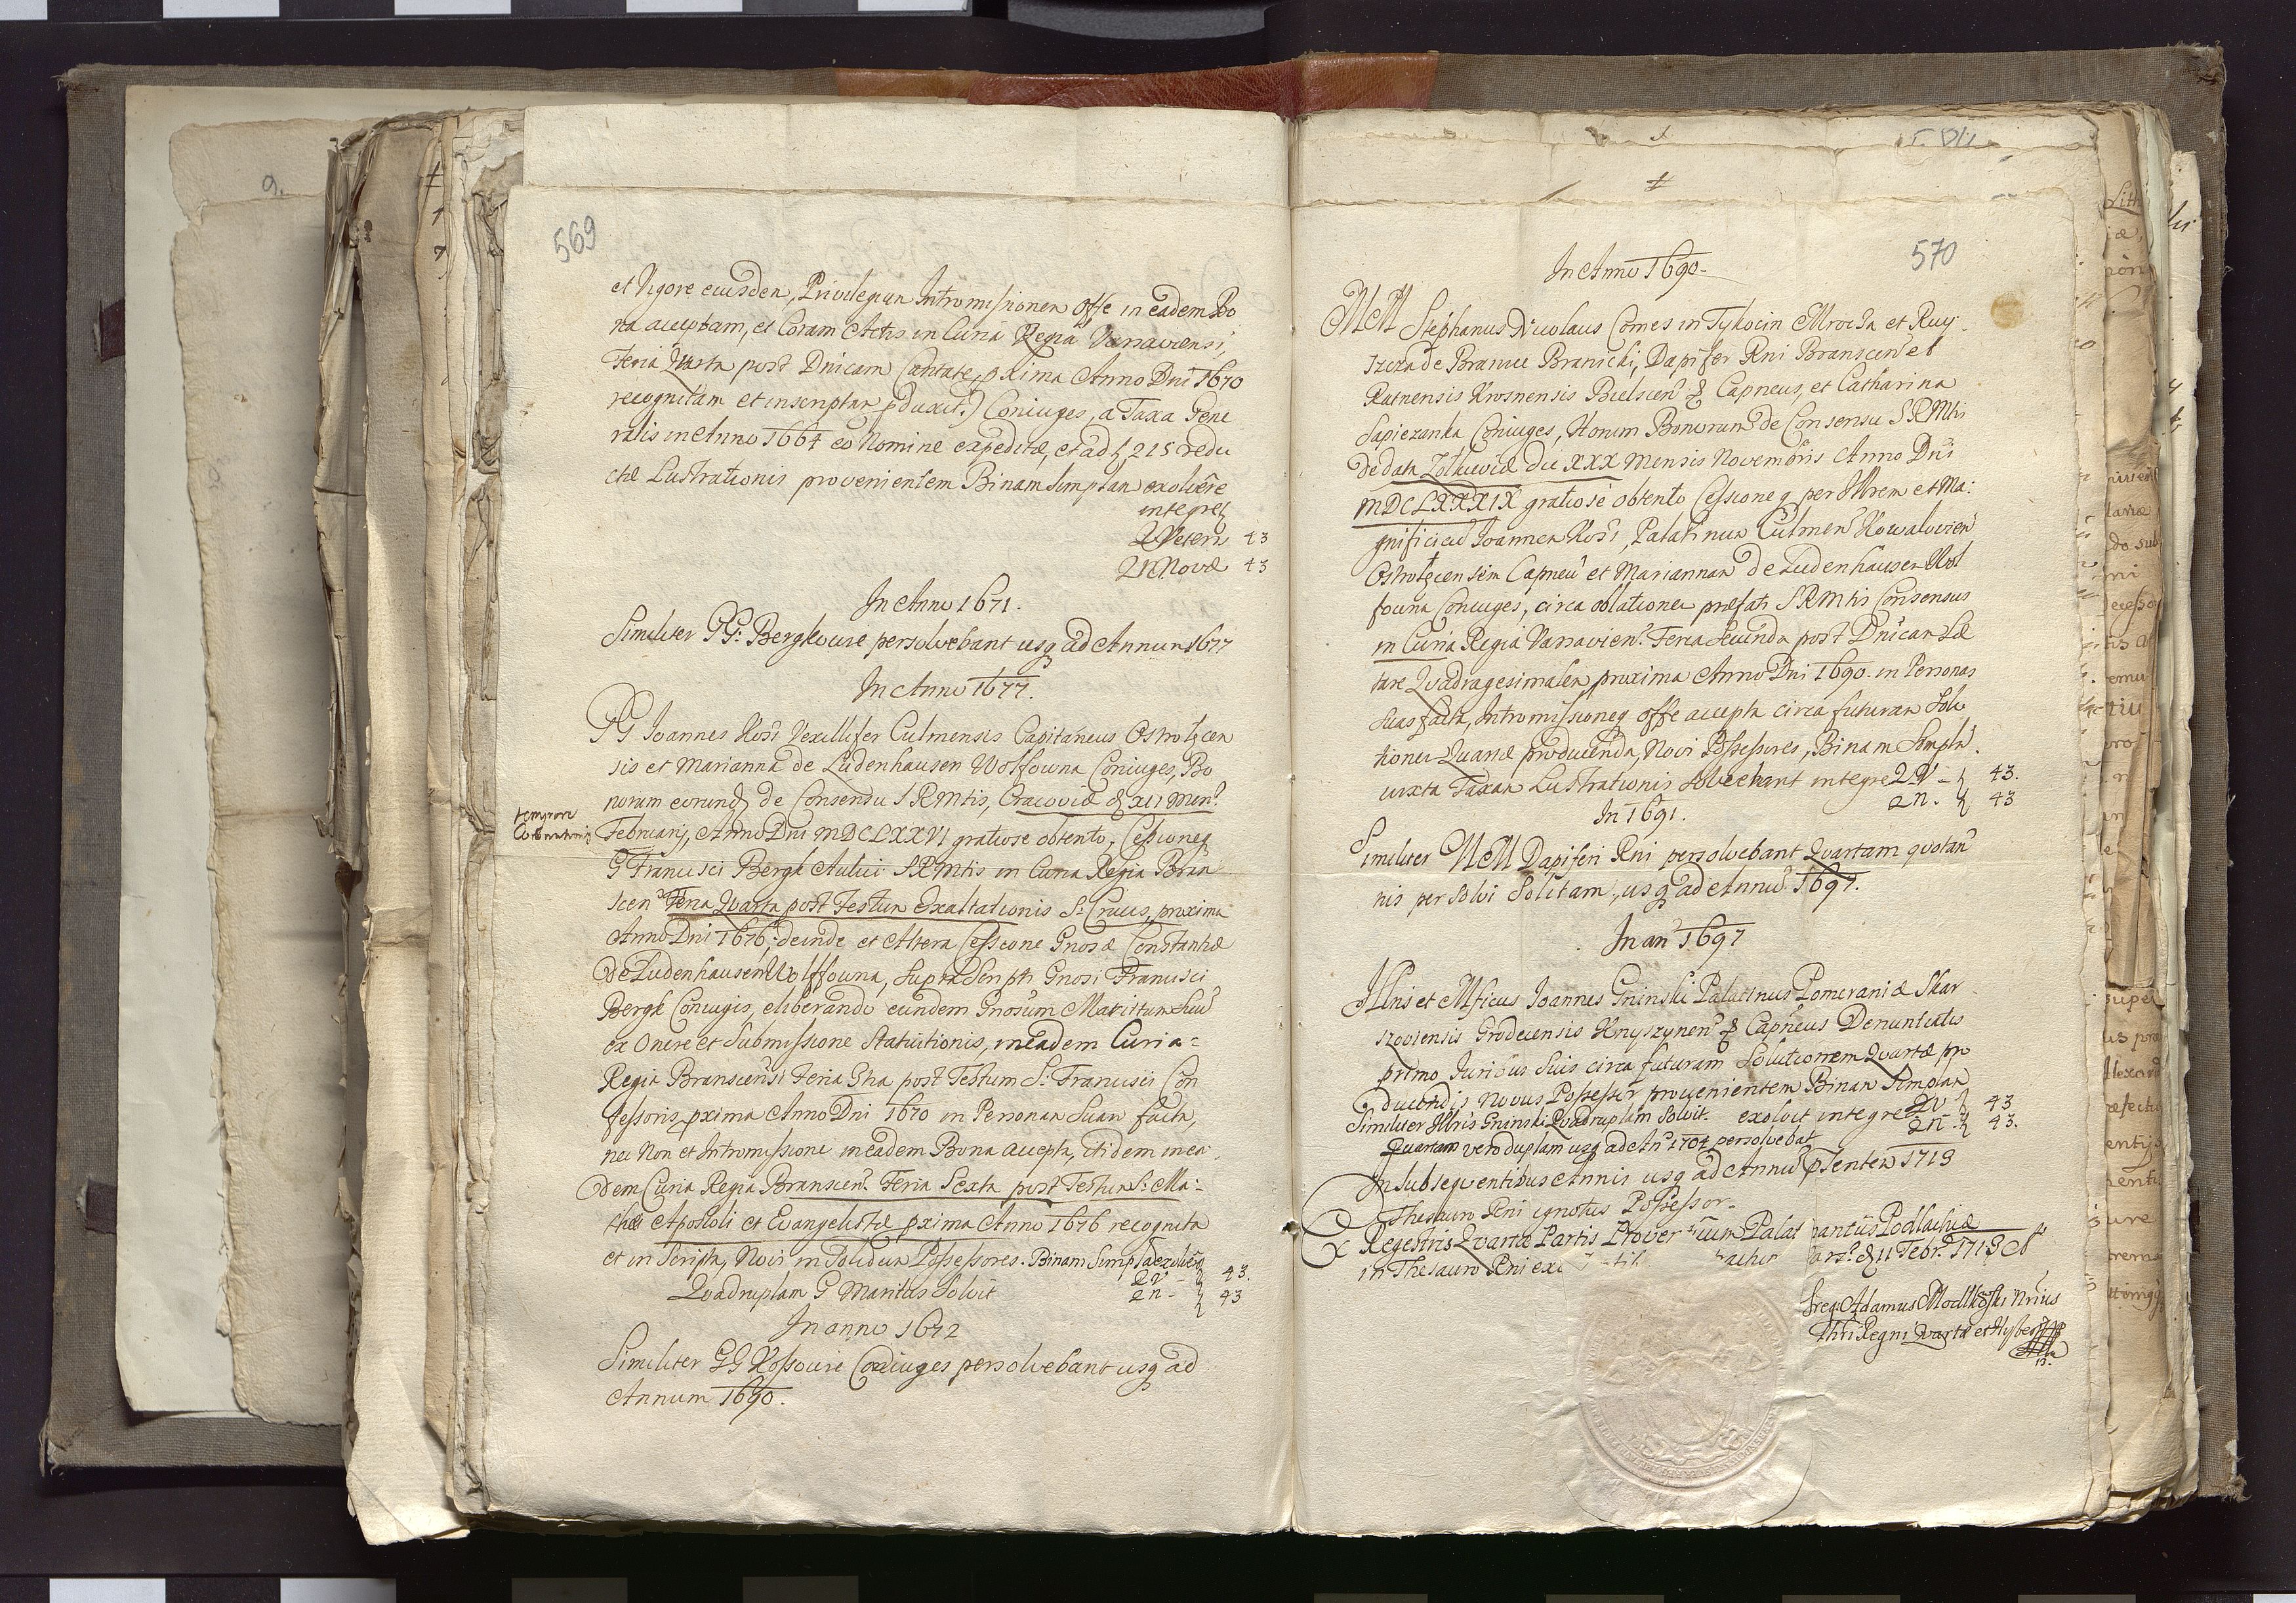 569
et Vigore eiusdem, Privilegium Intromissionem Offe in eadem Bo
na acceptam, et Coram Actis in Curia Regia Varsaviensi,
Feria Quarta post Dnicam Cantate pxima Anno Dni 1670
recognitam et inscriptam pduxit.) Coniuges, a Taxa Gene
ralis in Anno 1664 eo Nomine expeditæ, et ad 215 redu
ctæ Lustrationis provenientem Binam Simplam exoluêre
integre
2 Veteri 43
2 N Novæ 43
In Anno 1671.
Similiter GG: Bergkowie persolvebant usq ad Annum 1677
In Anno 1677.
GG Joannes Kos Vexillifer Culmensis Capitaneus Ostrołęcen
sis et Marianna de Ludenhausen Wolfowna Coniuges, Bo
norum eorund de Consensu SRMtis, Cracoviæ d XII Men.
tempore
Coronationis
Februarij, Anno Dni MDCLXXVI gratiose obtento, Cessioneq
G Francisci Bergk Aulici SRMtis in Curia Regia Bran
scen Feria Quarta post Festum Exaltationis S. Crucis, proxima
Anno Dni 1676; deinde et Altera Cessione Gnosæ Constantiæ
de Ludenhausen Wolffowna, Supra Scripti Gnosi Francisci
Bergk Coniugis, eliberando eundem Gnosum Maritum Suu
ex Onere et Submissione Statuitionis, in eadem Curia
Regia Branscensi Feria 5ta post Festum S. Francisci Con
fessoris pxima Anno Dni 1670 in Personam Suam facta,
nec Non et Intromissione in eadem Bona accepta, itidem in ea
dem Curia Regia Branscen. Feria Sexta post Festum S. Ma:
thæi Apostoli et Evangelistæ pxima Anno 1676 recognita
et in Scripta, Novi in Solidum Possessores. Binam Simpla exoluêre
2 V - 43.
Quadruplam G Maritus Soluit 2 n - 43
In anno 1672
Similiter GG Kossowie Coniuges persolvebant usq ad
Annum 1690.
570
In Anno 1690.
MM Stephanus Nicolaus Comes in Tykocin Mroczka et Ruy
szcza de Branice Branicki, Dapifer Rni Branscen et
Ratnensis Krosnensis Bielscen & Capneus, et Catharina
Sapiezanka Coniuges, Horum Bonorum de Consensu SRMtis
de data Zolkieviæ die XXX Mensis Novembris Anno Dni
MDCLXXXIX gratiose obtento Cessioneq per Illrem et Ma:
gnificum Joannem Kos, Palatinum Culmen Kowalovien
Ostrołęcensem Capneu et Mariannam de Ludenhausen Wol
fowna Coniuges, circa oblationem præfati SRMtis Consensus
in Curia Regia Varsavien. Feria Secunda post Dnicam Læ
tare Quadragesimalem proxima Anno Dni 1690. in Personas
Suas facta, Intromissioneq offe accepta circa futuram Solu
tionem Quartæ producenda, Novi Possessores, Binam Simpla.
iuxta Taxam Lustrationis soluebant integre 2 V - 43.
2 n. 43
In 1691.
Similiter MM Dapiferi Rni persolvebant Quartam quotan
nis persolvi Solitam, usq ad Annu 1697.
In an 1697
Illris et Mficus Joannes Gninski Palatinus Pomeraniæ Skar
szoviensis Grodecensis Knyszynen & Capneus Denuntiatis
primo Juribus Suis circa futuram Solutionem Quartæ pro
ducendis Novus Possessor provenientem Binam Simplam
Similiter Illris Gninski Quadruplam Solvit. exoluit integre 2 V 43
2 n - 43.
Quartam vero duplam usq ad An 1704 persolvebat
In Subsequentibus Annis usq ad Annu psentem 1713
Thesauro Rni ignotus Possessor.
Ex Regestris Quartæ Partis Prover tuum Palat nantûs Podlachiæ
in Thesauro Rni ars. d 11 Febr. 1713
Greg: Adamus Modlkoski Nrius
Thri Regni Quartæ et Hyber